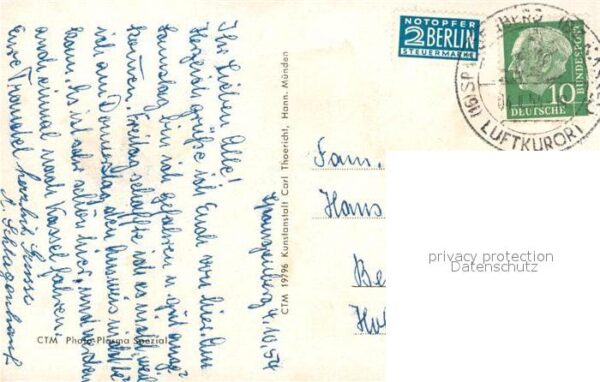 Spangenberg 4.10.54
Ihr Lieben Alle!
Herzlich grüße ich Euch von hier. Am
Samstag bin ich gefahren u. gut ange-
kommen. Freitag schaffte ich es nicht, weil
ich am Donnerstag den Ausweis nicht be-
kam. Es ist sehr schön hier, und werden
auch einmal nach Kassel fahren.
Eure Traudel herzlich Grüße
CTM Photo-Plasma Spezial
CTM 19796 Kunstanstalt Carl Thoericht, Hann. Münden
NOTOPFER
2 BERLIN
STEUERMARKE
LUFTKURORT
10
DEUTSCHE
BUNDESPOST
Fam.
Hans
privacy protection
Datenschutz